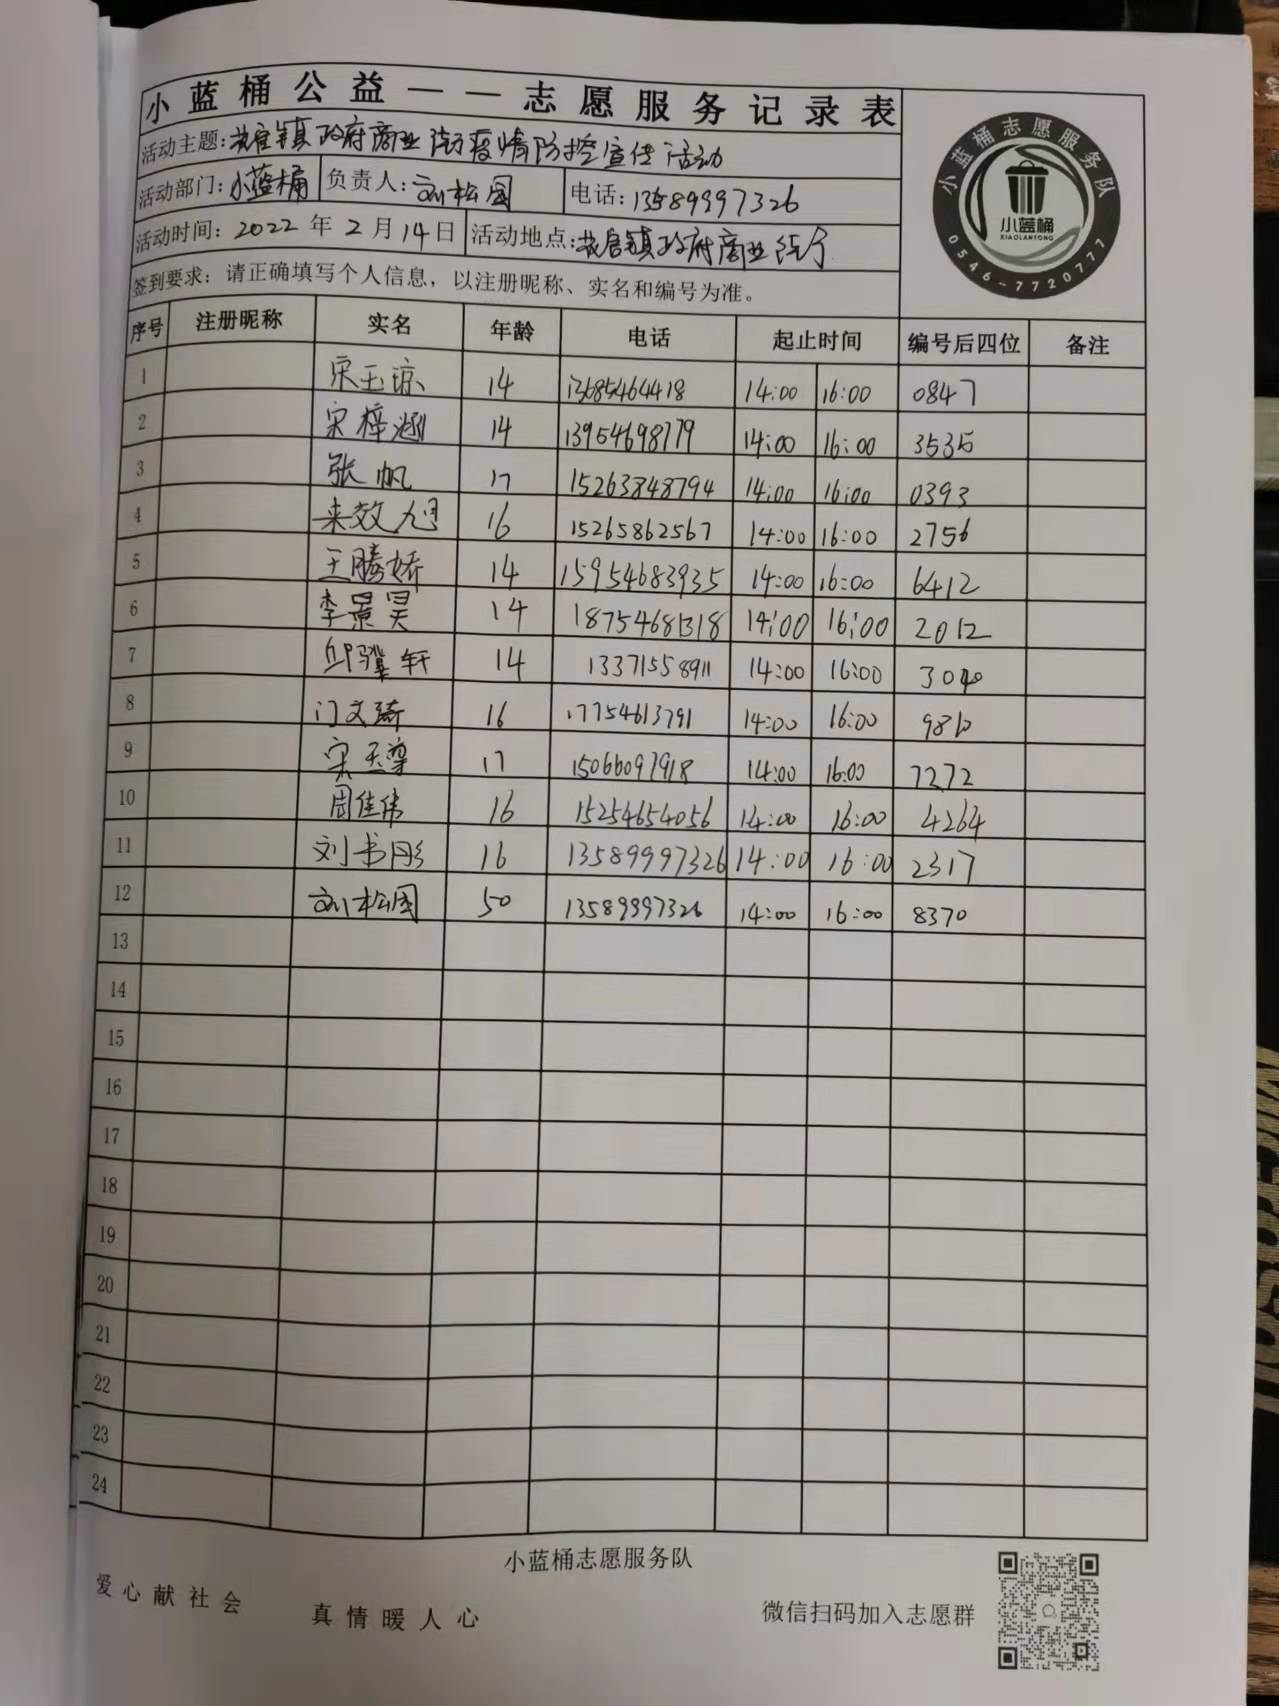 小蓝桶公益——志愿服务记录表
活动主题：镇政府商业街疫情防控宣传活动
活动部门：小蓝桶 负责人：刘松国 电话：13589997326
活动时间：2022年2月14日 活动地点：镇政府商业街
签到要求：请正确填写个人信息，以注册昵称、实名和编号为准。
小蓝桶志愿服务队
小蓝桶
XIAOLANTONG
0546-7720777
序号 注册昵称 实名 年龄 电话 起止时间 编号后四位 备注
1 宋玉琼 14 13685464418 14:00 16:00 0847
2 宋梓涵 14 13954698779 14:00 16:00 3535
3 张帆 17 15263848794 14:00 16:00 0393
4 来效旭 16 15265862567 14:00 16:00 2756
5 王腾娇 14 15954683935 14:00 16:00 6412
6 李景昊 14 18754681318 14:00 16:00 2012
7 邱骥轩 14 13371558911 14:00 16:00
8 门文琦 16 17754613791 14:00 16:00
9 宋玉尊 17 15066097918 14:00 16:00 7272
10 周佳伟 16 15254654056 14:00 16:00 4264
11 刘书彤 16 13589997326 14:00 16:00 2317
12 刘松国 50 13589997326 14:00 16:00 8370
13
14
15
16
17
18
19
20
21
22
23
24
小蓝桶志愿服务队
爱心献社会
真情暖人心
微信扫码加入志愿群